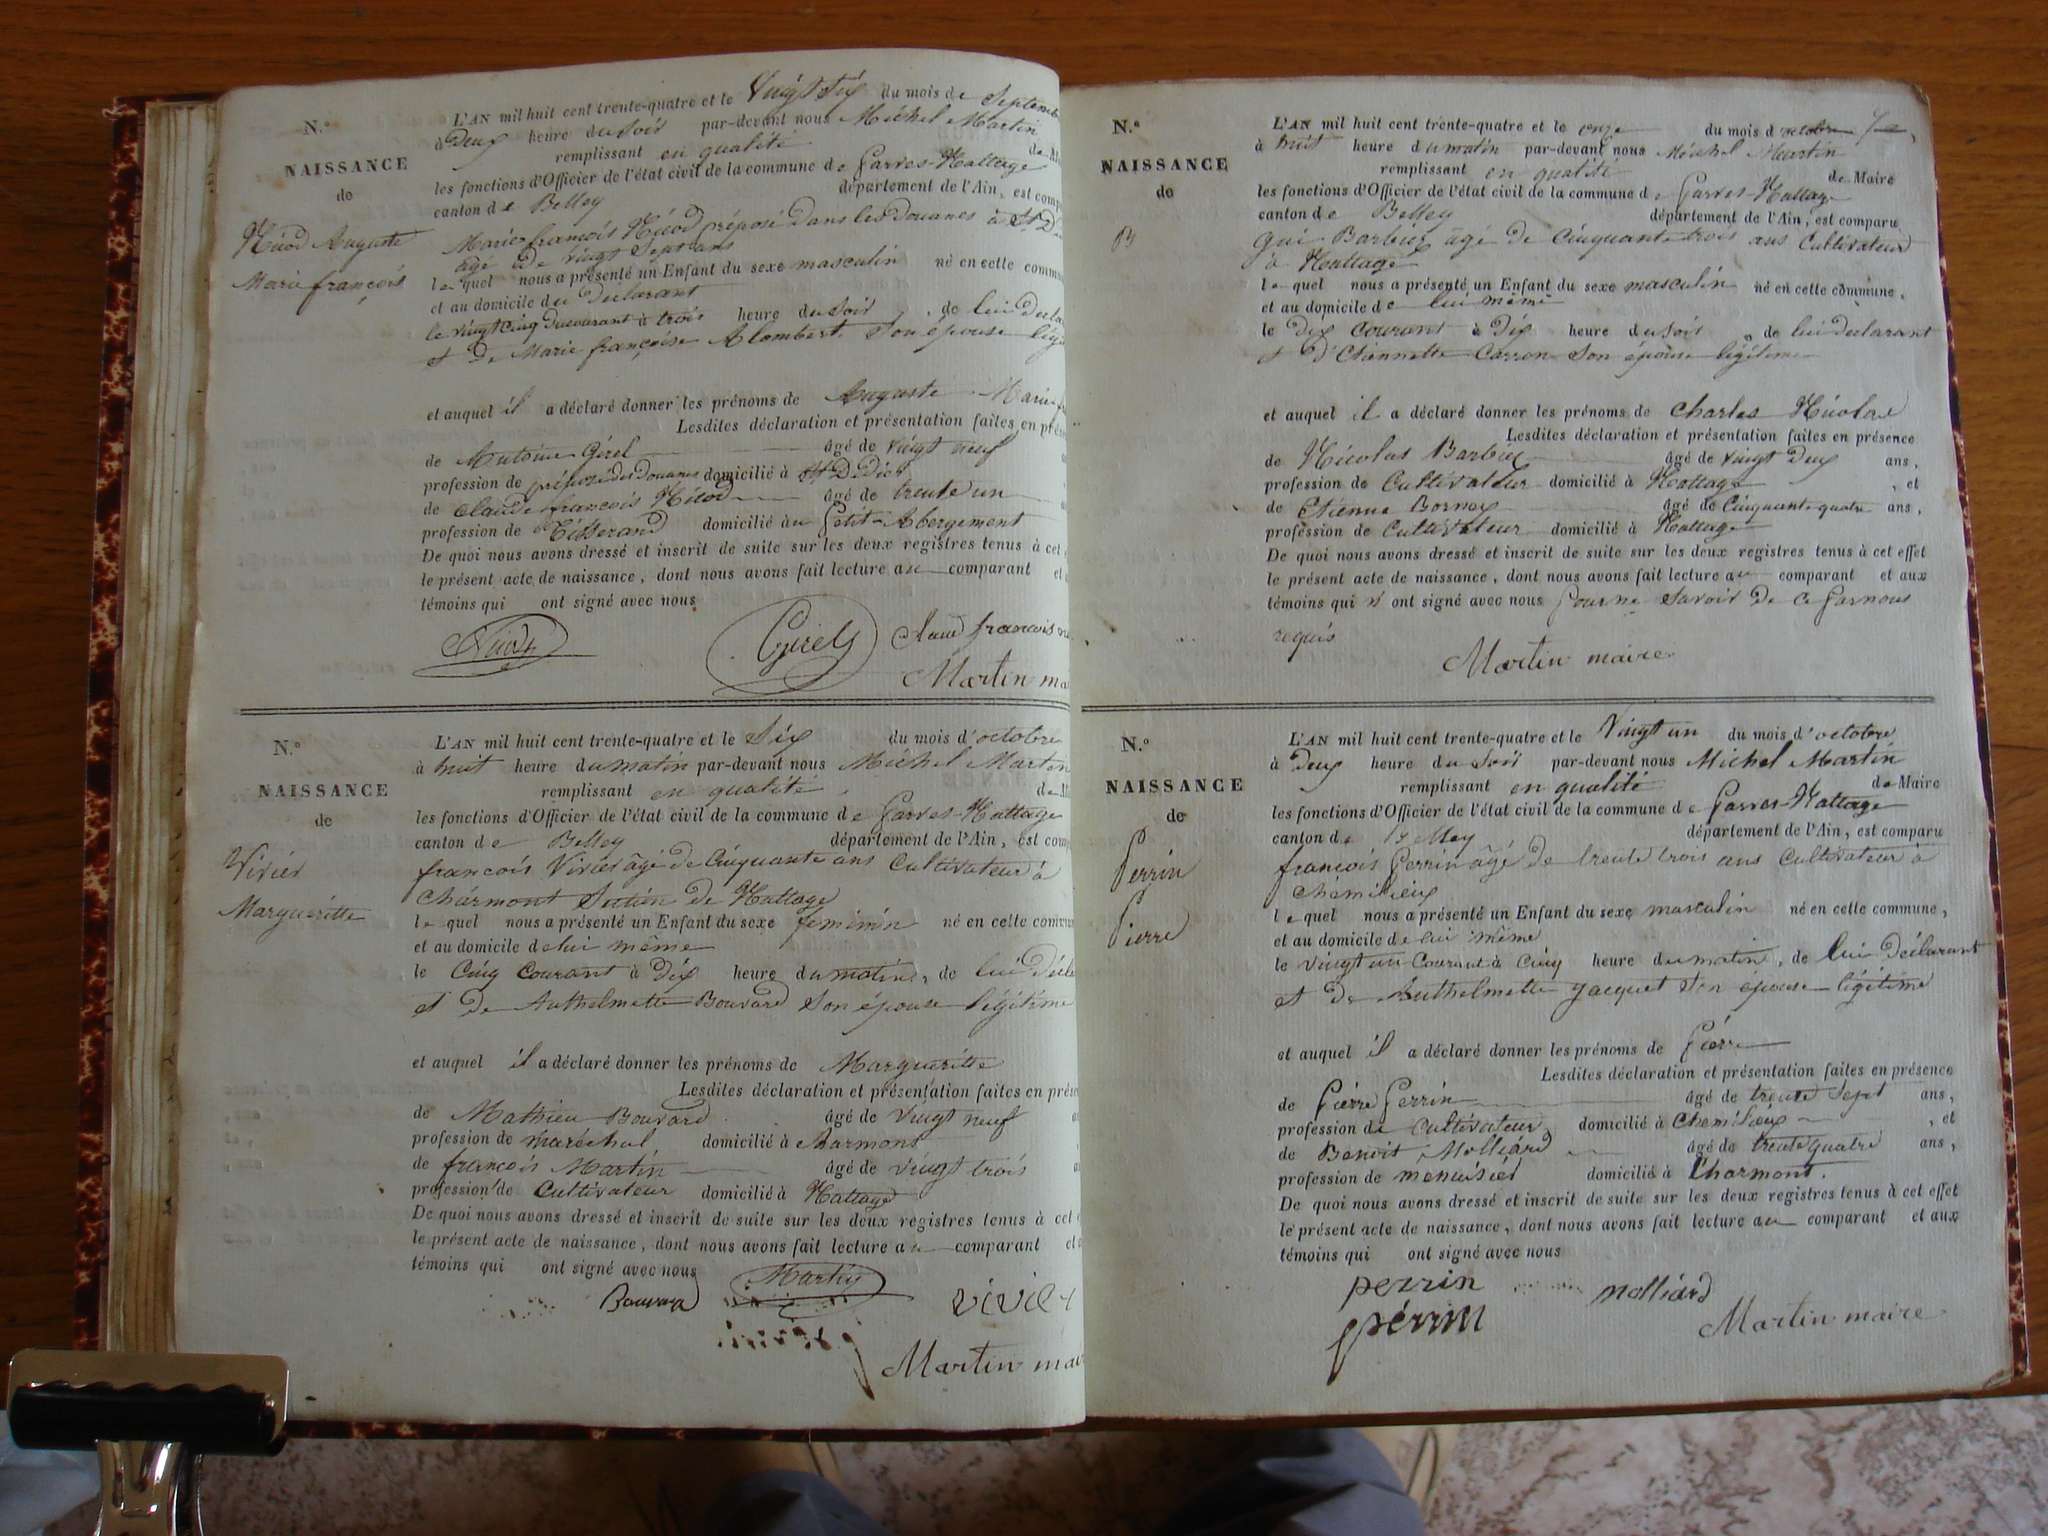 N.º
NAISSANCE
de
Nicod Auguste
Marie françois
L'AN mil huit cent trente-quatre et le Vingt Six du mois de Septemb
à Deux heure du Soir par-devant nous Michel Martin
remplissant en qualité de M
les fonctions d'Officier de l'état civil de la commune de Parves-Nattage
canton de Belley département de l'Ain, est comp
Marie françois Nicod préposé Dans les Douanes à St D
âgé de vingt Sept ans
lequel nous a présenté un Enfant du sexe masculin né en cette comm
et au domicile du Declarant
le vingt cinq du courant à trois heure du soir, de lui decla
et De Marie françoise Alombert Son épouse légi
et auquel il a déclaré donner les prénoms de Auguste Marie f
Lesdites déclaration et présentation faites en prés
de Antoine Girel âgé de vingt neuf
profession de préposé des Douanes domicilié à St D. Dier
de Claude françois Nicod âgé de trente un
profession de Tisserand domicilié au Petit-Abergement
De quoi nous avons dressé et inscrit de suite sur les deux registres tenus à cet
le présent acte de naissance, dont nous avons fait lecture au comparant et
témoins qui ont signé avec nous
Nicod Girel Claud françois
Martin ma
N.º
NAISSANCE
de
Vivier
Margueritte
L'AN mil huit cent trente-quatre et le Six du mois d'octobre
à huit heure du matin par-devant nous Michel Martin
remplissant en qualité de M
les fonctions d'Officier de l'état civil de la commune de Parves-Nattage
canton de Belley département de l'Ain, est comp
françois Vivier âgé de Cinquante ans Cultivateur à
Charmont Section de Nattage
lequel nous a présenté un Enfant du sexe feminin né en cette commun
et au domicile de lui même
le Cinq Courant à Dix heure du matin, de lui Décla
et de Anthelmette Bouvard Son épouse légitime
et auquel il a déclaré donner les prénoms de Margueritte
Lesdites déclaration et présentation faites en prése
de Mathieu Bouvard âgé de Vingt neuf
profession de maréchal domicilié à Charmont
de françois Martin âgé de vingt trois
profession de Cultivateur domicilié à Nattage
De quoi nous avons dressé et inscrit de suite sur les deux registres tenus à cet
le présent acte de naissance, dont nous avons fait lecture au comparant et
témoins qui ont signé avec nous
Bouvard Martin vivier
Martin mai
N.º
NAISSANCE
de
B
L'AN mil huit cent trente-quatre et le onze du mois d octobre
à huit heure du matin par-devant nous Michel Martin
remplissant en qualité de Maire
les fonctions d'Officier de l'état civil de la commune de Parves-Nattage
canton de Belley département de l'Ain, est comparu
Gui Barbier âgé de Cinquante trois ans Cultivateur
à Nattage
lequel nous a présenté un Enfant du sexe masculin né en cette commune,
et au domicile de lui même
le Dix courant à Dix heure du soir, de lui declarant
et d'Etiennette Carron Son épouse légitime
et auquel il a déclaré donner les prénoms de Charles Nicolas
Lesdites déclaration et présentation faites en présence
de Nicolas Barbier âgé de vingt Deux ans,
profession de Cultivateur domicilié à Nattage, et
de Etienne Bornex âgé de Cinquante quatre ans,
profession de Cultivateur domicilié à Nattage
De quoi nous avons dressé et inscrit de suite sur les deux registres tenus à cet effet
le présent acte de naissance, dont nous avons fait lecture au comparant et aux
témoins qui n'ont signé avec nous Pour ne savoir de ce par nous
requis
Martin maire
N.º
NAISSANCE
de
Perrin
Pierre
L'AN mil huit cent trente-quatre et le Vingt un du mois d'octobre
à Deux heure du Soir par-devant nous Michel Martin
remplissant en qualité de Maire
les fonctions d'Officier de l'état civil de la commune de Parves-Nattage
canton de Belley département de l'Ain, est comparu
françois Perrin âgé de trente trois ans Cultivateur à
Chemilieux
lequel nous a présenté un Enfant du sexe masculin né en cette commune,
et au domicile de lui même
le vingt un Courant à Cinq heure du matin, de lui Déclarant
et de Anthelmette Jacquet Son épouse légitime
et auquel il a déclaré donner les prénoms de Pierre
Lesdites déclaration et présentation faites en présence
de Pierre Perrin âgé de trente Sept ans,
profession de Cultivateur domicilié à Chemilieux, et
de Benoit Molliard âgé de trente quatre ans,
profession de menuisier domicilié à Charmont.
De quoi nous avons dressé et inscrit de suite sur les deux registres tenus à cet effet
le présent acte de naissance, dont nous avons fait lecture au comparant et aux
témoins qui ont signé avec nous
perrin molliard
pérrin Martin maire